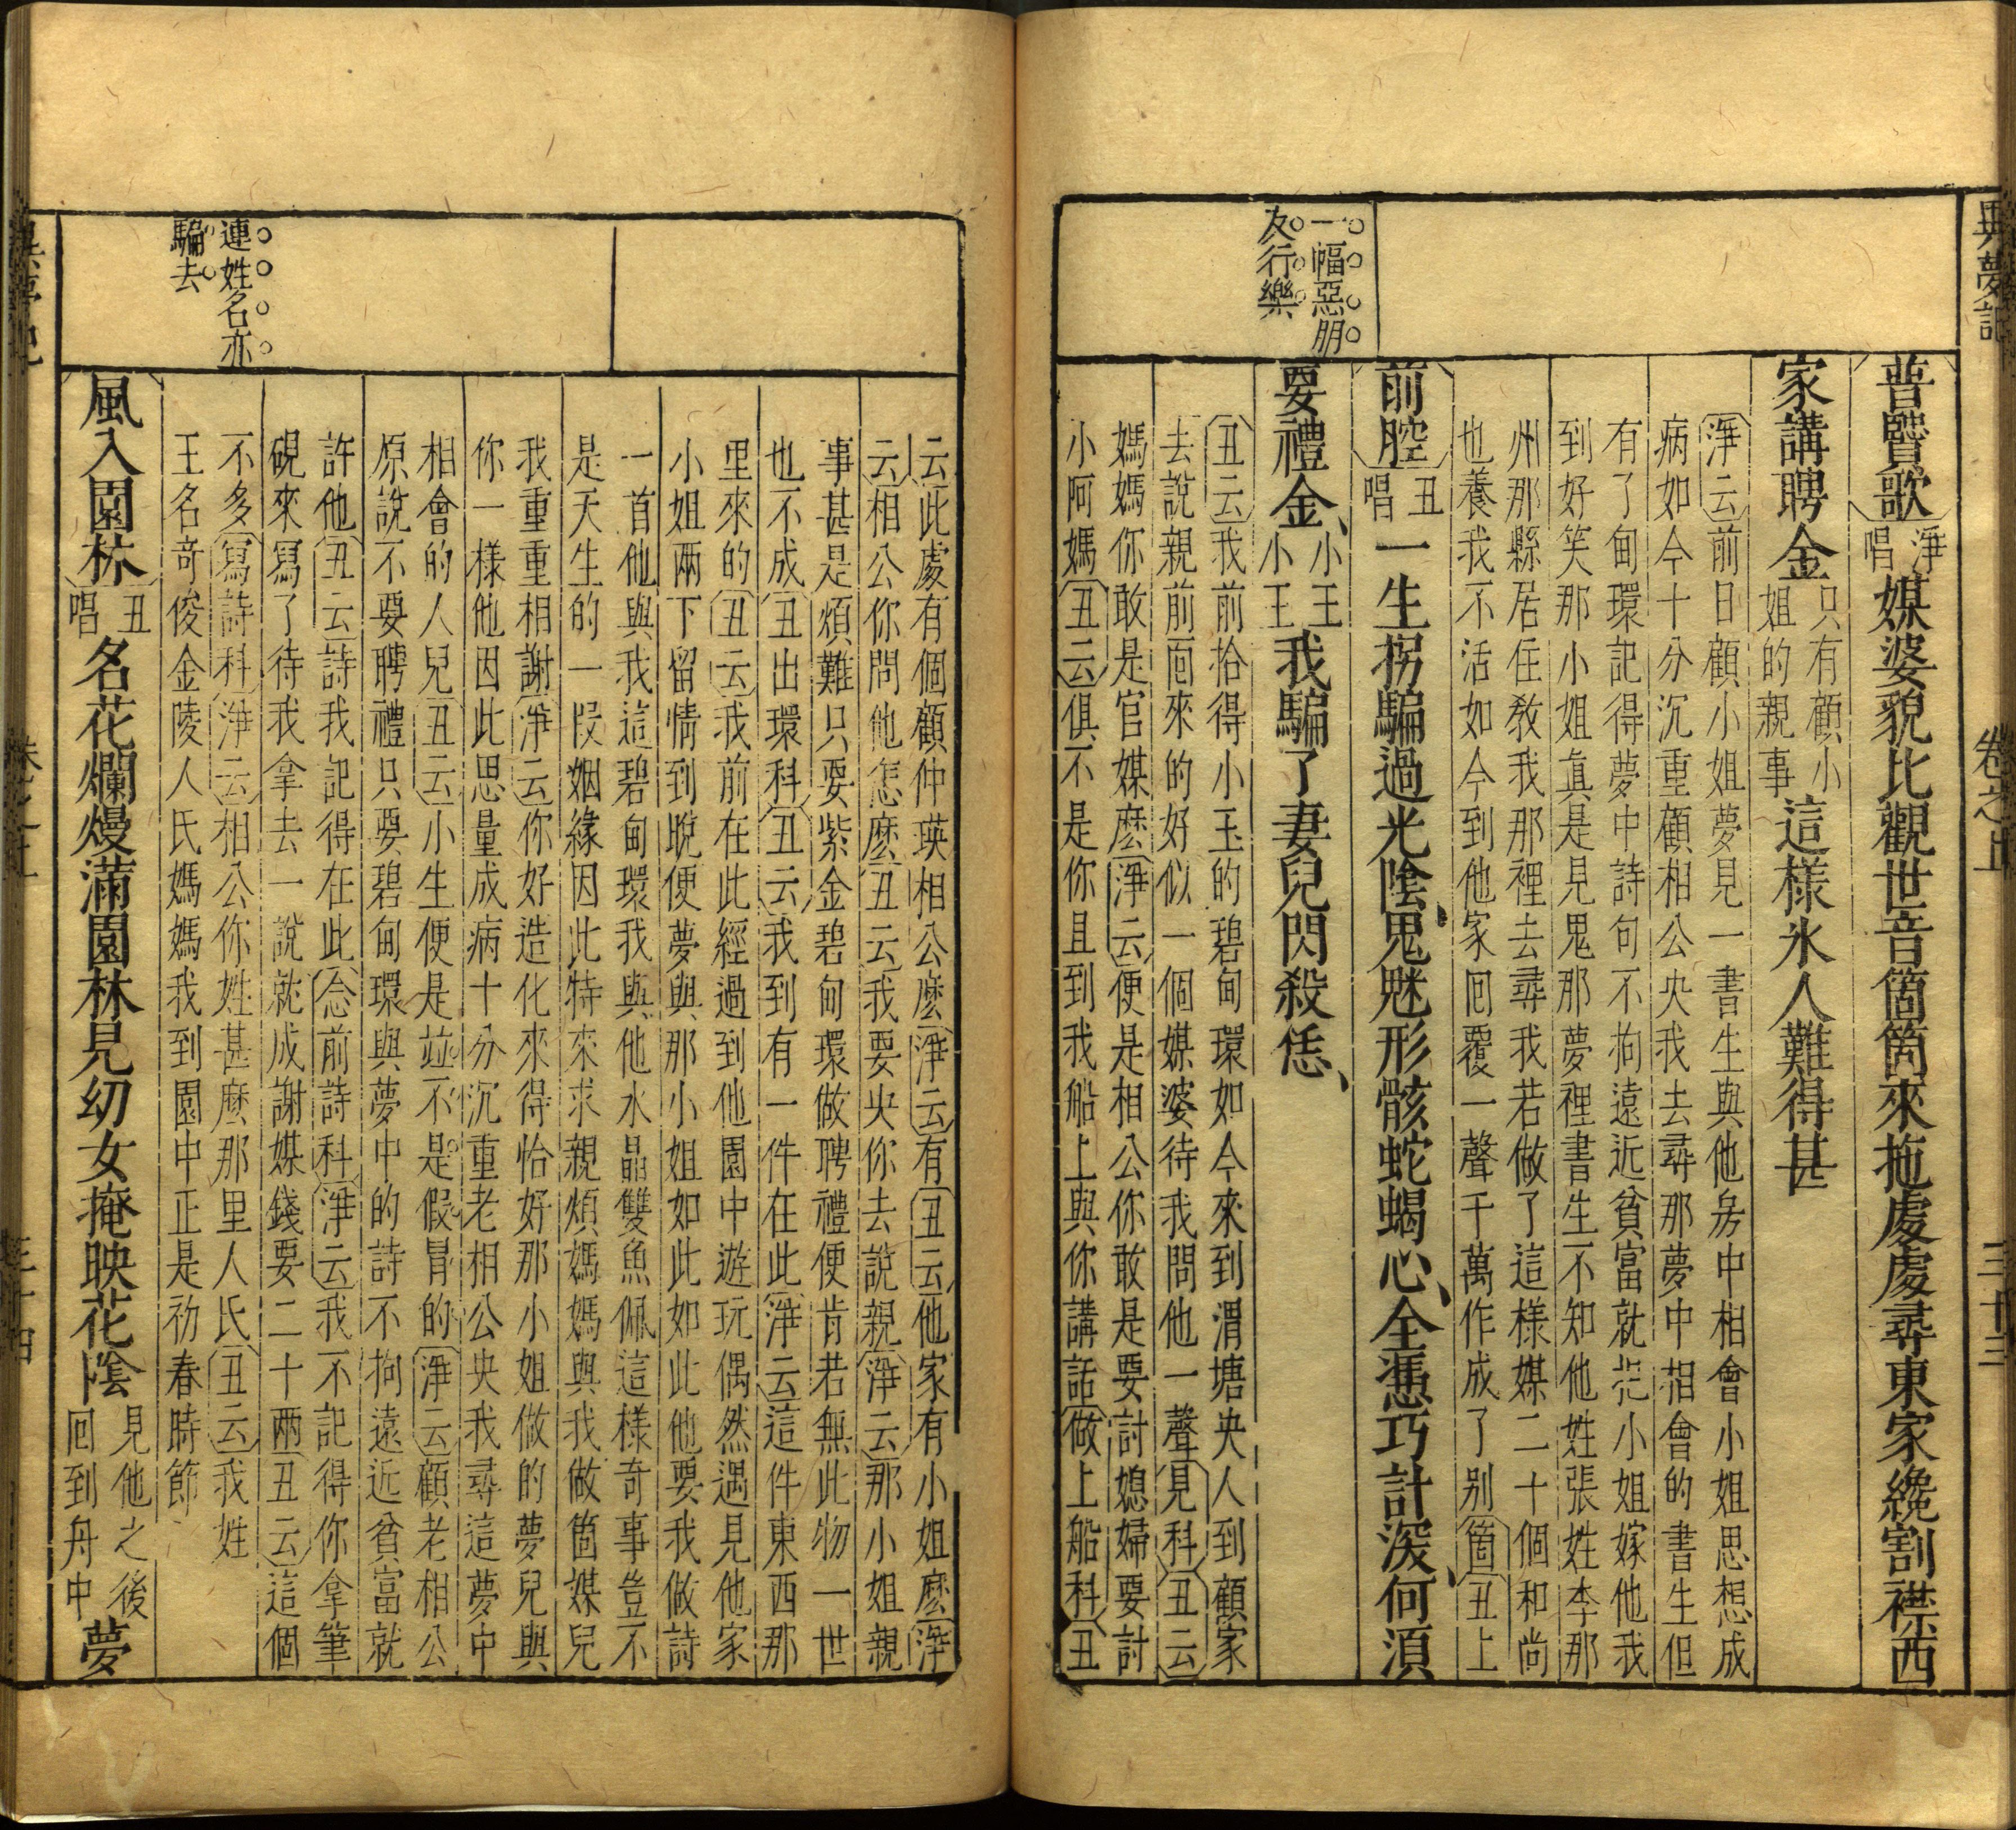 異夢記
卷之上
三十三
一幅惡朋
友行樂
普賢歌淨唱媒婆貌比觀世音箇箇來拖處處尋東家纔割襟西
家講聘金只有顧小姐的親事這樣氷人難得甚
淨云前日顧小姐夢見一書生與他房中相會小姐思想成
病如今十分沉重顧相公央我去尋那夢中相會的書生但
有了甸環記得夢中詩句不拘遠近貧富就把小姐嫁他我
到好笑那小姐眞是見鬼那夢裡書生不知他姓張姓李那
州那縣居住敎我那裡去尋我若做了這樣媒二十個和尚
也養我不活如今到他家回覆一聲千萬作成了别箇丑上
前腔丑唱一生拐騙過光陰鬼魅形骸蛇蝎心全憑巧計深何須
要禮金小王小王我騙了妻兒閃殺恁
丑云我前拾得小玉的碧甸環如今來到渭塘央人到顧家
去說親前面來的好似一個媒婆待我問他一聲見科丑云
媽媽你敢是官媒麽淨云便是相公你敢是要討媳婦要討
小阿媽丑云俱不是你且到我船上與你講話做上船科丑
連姓名亦
騙去
云此處有個顧仲瑛相公麽淨云有丑云他家有小姐麽淨
云相公你問他怎麽丑云我要央你去說親淨云那小姐親
事甚是煩難只要紫金碧甸環做聘禮便肯若無此物一世
也不成丑出環科丑云我到有一件在此淨云這件東西那
里來的丑云我前在此經過到他園中遊玩偶然遇見他家
小姐兩下留情到晚便夢與那小姐如此如此他要我做詩
一首他與我這碧甸環我與他水晶雙魚佩這樣奇事豈不
是天生的一段姻緣因此特來求親煩媽媽與我做箇媒兒
我重重相謝淨云你好造化來得恰好那小姐做的夢兒與
你一樣他因此思量成病十分沉重老相公央我尋這夢中
相會的人兒丑云小生便是並不是假冒的淨云顧老相公
原說不要聘禮只要碧甸環與夢中的詩不拘遠近貧富就
許他丑云詩我記得在此念前詩科淨云我不記得你拿筆
硯來寫了待我拿去一說就成謝媒錢要二十兩丑云這個
不多寫詩科淨云相公你姓甚麽那里人氏丑云我姓
王名奇俊金陵人氏媽媽我到園中正是初春時節
風入園林丑唱名花爛熳滿園林見幼女掩映花陰見他之後回到舟中夢